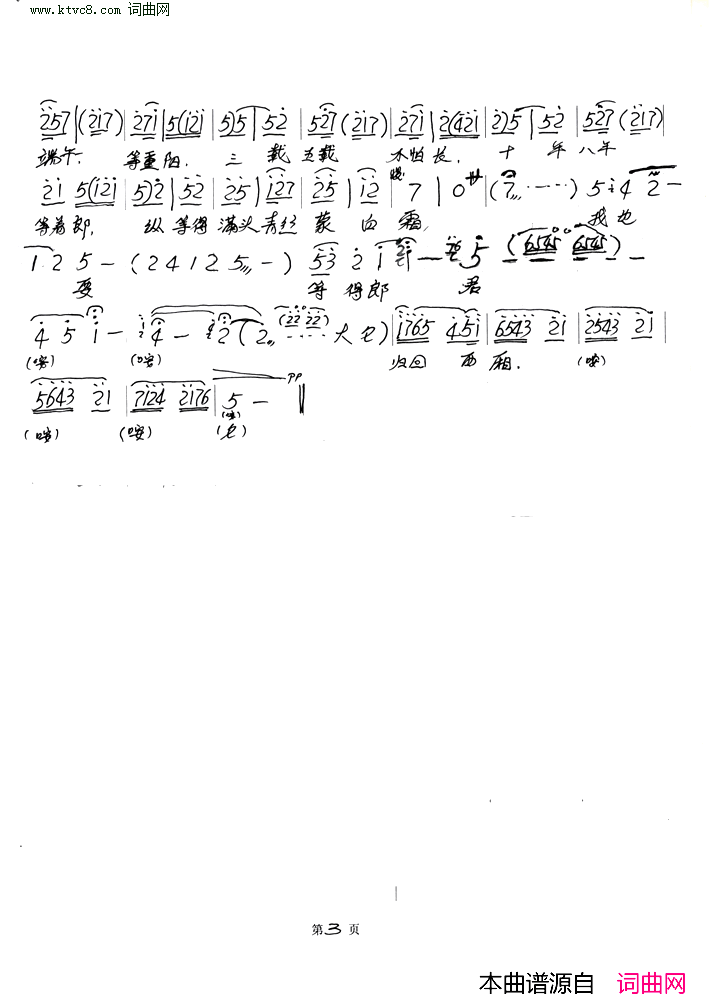 www.ktvc8.com 词曲网
2 5 7 | (2 1 7) | 2 7 1 | 5 (1 2 1 | 5) 5 | 5 2 | 5 2 7 (2 1 7) | 2 7 1 | 2 (4 2 1 | 2) 5 | 5 2 | 5 2 7 (2 1 7) |
端午, 等重阳, 三 载 五载 不怕长, 十 年 八年
2 1 5 (1 2 1 | 5) 2 | 5 2 | 2 5 | 1 2 7 | 2 5 | 1 2 | 7 | 0 | (7 ······) 5 · 4 2 -
等着郎, 纵 等得 满头 青丝 蒙 白 霜, 我也
1 2 5 - (2 4 1 2 5 -) 5 3 2 1 - 5 (6545 6545) -
要 等 得郎 君
4 5 1 - 4 - 2 (2 22 22 大仓) | 1765 451 | 6543 21 | 2543 21 |
(唉) (唉) 归回 西 厢. (唉)
5643 21 | 7124 2176 | 5 - pp
(唉) (唉) (唉)
(仓)
第3页
本曲谱源自 词曲网